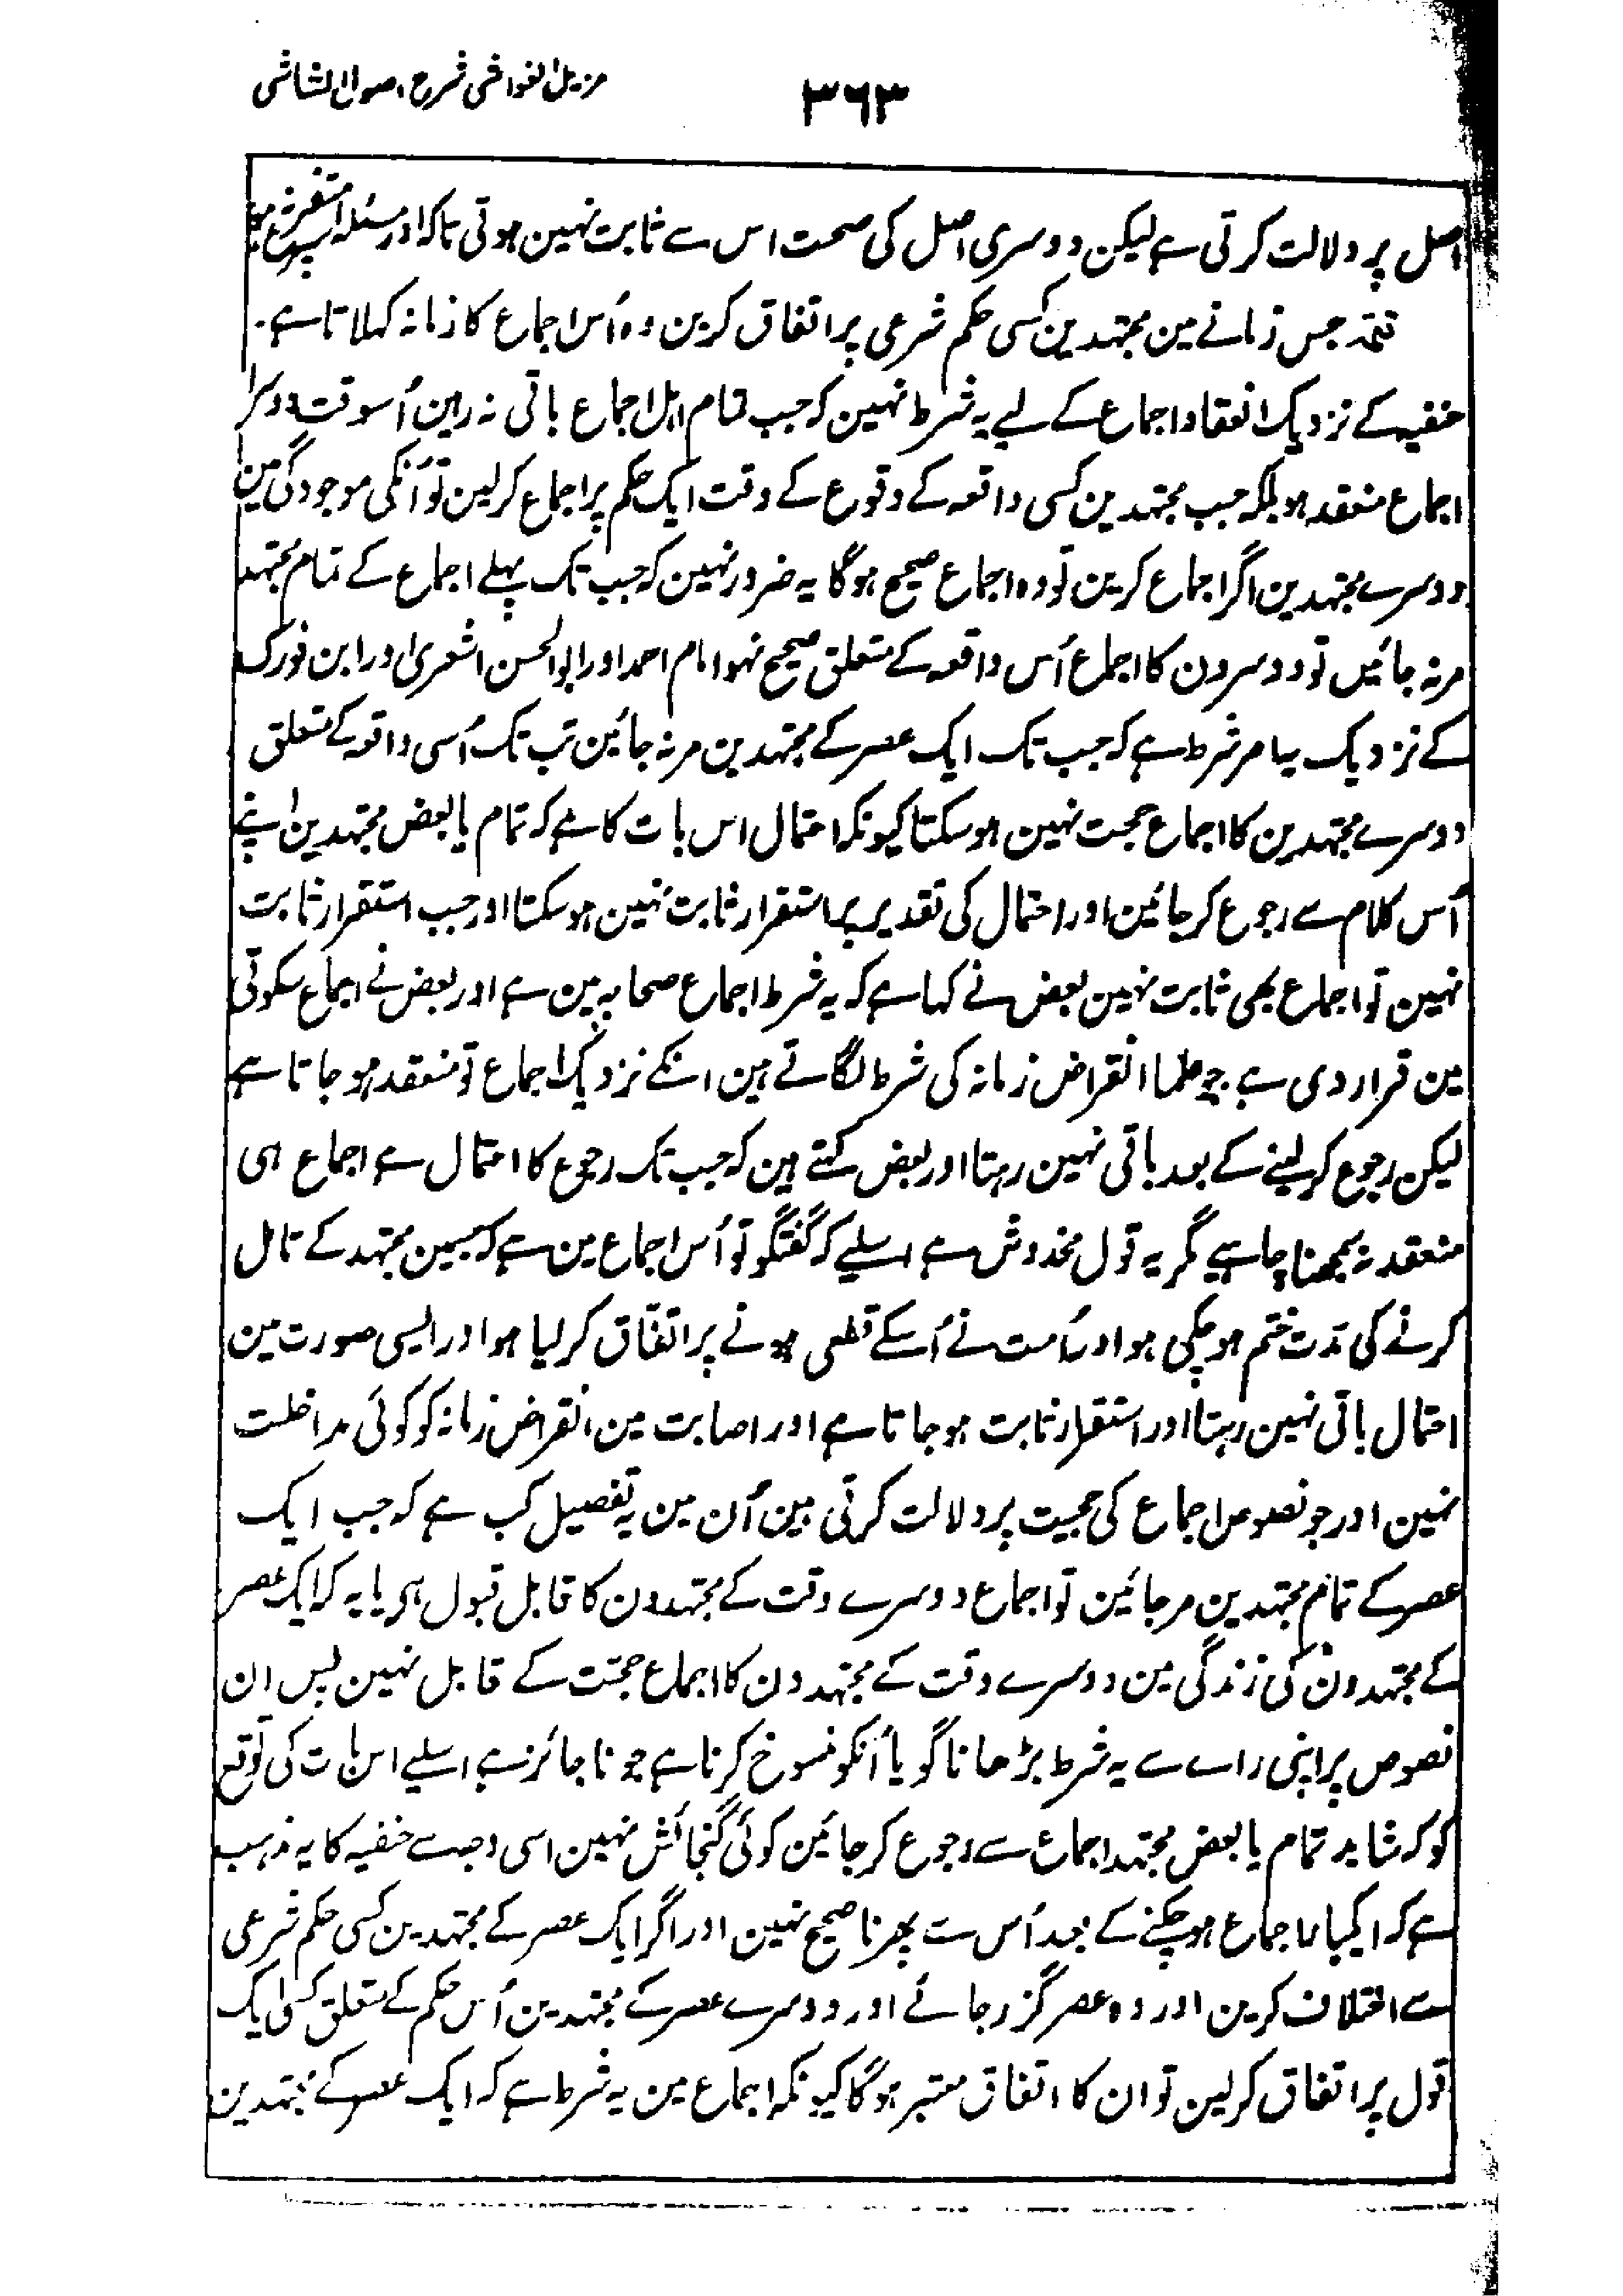 مزیل الغواشی شرح اصول الشاشی
۳۶۳
اصل پر دلالت کرتی ہے لیکن دوسری اصل کی صحت اس سے ثابت نہین ہوتی تاکہ اور مسئلہ اسپر متفرع
تتمہ جس زمانے مین مجتہدین کسی حکم شرعی پر اتفاق کرین وہ اُس اجماع کا زمانہ کہلاتا ہے۔
حنفیہ کے نزدیک انعقاد اجماع کے لیے یہ شرط نہین کہ جب تمام اہل اجماع باقی نہ رہین اُسوقت دوسرا
اجماع منعقد ہو بلکہ جب مجتہدین کسی واقعہ کے وقوع کے وقت ایک حکم پر اجماع کرلین تو اُنکی موجودگی مین
دوسرے مجتہدین اگر اجماع کرین تو وہ اجماع صحیح ہوگا یہ ضرور نہین کہ جب تک پہلے اجماع کے تمام مجتہد
مرنہ جائیں تو دوسرون کا اجماع اُس واقعہ کے متعلق صحیح نہو امام احمد اور ابوالحسن اشعری اور ابن فورک
کے نزدیک یہ امر شرط ہے کہ جب تک ایک عصر کے مجتہدین مرنہ جائین تب تک اُسی واقعہ کے متعلق
دوسرے مجتہدین کا اجماع حجت نہین ہوسکتا کیونکہ احتمال اس بات کا ہے کہ تمام یا بعض مجتہدین اپنے
اُس کلام سے رجوع کرجائین اور احتمال کی تقدیر پر استقرار ثابت نہین ہوسکتا اور جب استقرار ثابت
نہین تو اجماع بھی ثابت نہین بعض نے کہا ہے کہ یہ شرط اجماع صحابہ مین ہے اور بعض نے اجماع سکوتی
مین قرار دی ہے جو علما انقراض زمانہ کی شرط لگاتے ہین انکے نزدیک اجماع تو منعقد ہوجاتا ہے
لیکن رجوع کرلینے کے بعد باقی نہین رہتا اور بعض کہتے ہین کہ جب تک رجوع کا احتمال ہے اجماع ہی
منعقد نہ سمجھنا چاہیے مگر یہ قول مخدوش ہے اسلیے کہ گفتگو تو اُس اجماع مین ہے کہ جسمین مجتہد کے تامل
کرنے کی مدت ختم ہوچکی ہو اور اُمت نے اُسکے قطعی ہونے پر اتفاق کرلیا ہو اور ایسی صورت مین
احتمال باقی نہین رہتا اور استقرار ثابت ہوجاتا ہے اور اصابت مین انقراض زمانہ کو کوئی مداخلت
نہین اور جو نصوص اجماع کی حجیت پر دلالت کرتی ہین اُن مین یہ تفصیل کب ہے کہ جب ایک
عصر کے تمام مجتہدین مرجائین تو اجماع دوسرے وقت کے مجتہدون کا قابل قبول ہو یا یہ کہ ایک عصر
کے مجتہدون کی زندگی مین دوسرے وقت کے مجتہدون کا اجماع حجت کے قابل نہین پس ان
نصوص پر اپنی راے سے یہ شرط بڑھانا گویا اُنکو منسوخ کرنا ہے جو ناجائز ہے اسلیے اس بات کی توقع
کو کہ شاید تمام یا بعض مجتہد اجماع سے رجوع کرجائین کوئی گنجائش نہین اسی وجہ سے حنفیہ کا یہ مذہب
ہے کہ ایکبار اجماع ہوچکنے کے بعد اُس سے پھرنا صحیح نہین اور اگر ایک عصر کے مجتہدین کسی حکم شرعی
سے اختلاف کرین اور وہ عصر گزر جائے اور دوسرے عصر کے مجتہدین اُس حکم کے متعلق کسی ایک
قول پر اتفاق کرلین تو ان کا اتفاق معتبر ہوگا کیونکہ اجماع مین یہ شرط ہے کہ ایک عصر کے مجتہدین